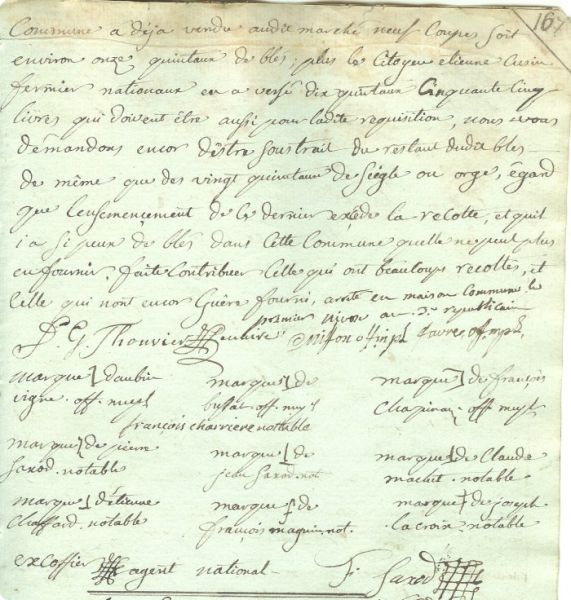 167
Commune a déja vendu audit marché neuf Coupes soit
environ onze quintaux de bles; plus le Citoyen etienne
fermier nationaux en a versé dix quintaux Cinquante Cinq
livres qui doivent étre aussi pour ladite requisition, nous vous
démandons encor d'éstre soustrait du restant dudit bles
de même que des vingt quintaux de siégle ou orge, égard
que l'ensemencement de ce dernier exéde la recolte, et quil
i a si peux de bles dans Cette Commune quelle ne peut plus
en fournir, faite Contribuer Celle qui ont beaucoups recoltés, et
Celle qui nont encor Guére fourni, arreté en maison Commune le
premier nivose an 3.e republicain
P. G. Thouvier off. mpl.
marque de aubin marque de marque de françois
vigne. off. mupl off. mupl off. mupl
françois charriere notable
marque de pierre marque de marque de Claude
Saxod. notable jean Saxod. not. machet. notable
marque d'étienne marque de marque de joseph
Chaffard. notable françois not. lacroix. notable
excoffier agent national F. Saxod